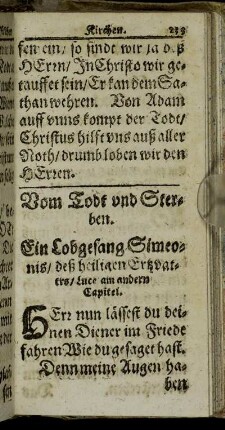 Kirchen. 239
sen ein/ so sindt wir ja deß
HErrn/ In Christo wir ge-
tauffet sein/ Er kan dem Sa-
than wehren. Von Adam
auff vnns kompt der Todt/
Christus hilft vns auß aller
Noth/ drumb loben wir den
HErren.
Vom Todt vnd Ster-
ben.
Ein Lobgesang Simeo-
nis/ deß heiligen Ertzvat-
ters/ Luce am andern
Capitel.
HErr nun lässest du dei-
nen Diener im Friede
fahren Wie du gesaget hast.
Denn meine Augen ha-
ben